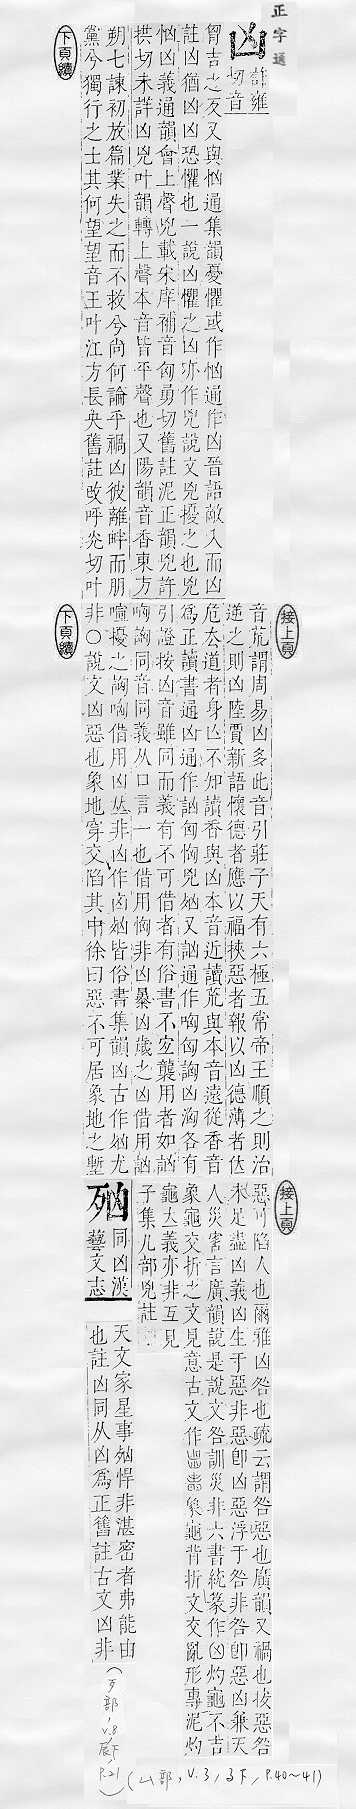 正字通
凶
許雍
切音
胷吉之反又與恟通集韻憂懼或作恟通作凶晉語敵入而凶
註凶猶凶凶恐懼也一說凶懼之凶亦作兇說文兇擾之也兇
恟凶義通韻會上聲兇載宋庠補音匈勇切舊註泥正韻兇許
拱切未詳凶兇叶韻轉上聲本音皆平聲也又陽韻音香東方
朔七諫初放篇業失之而不救兮尚何論乎禍凶彼離畔而朋
黨兮獨行之士其何望望音王叶江方長央舊註改呼炎切叶
下頁續
接上頁
音荒謂周易凶多此音引莊子天有六極五常帝王順之則治
逆之則凶陸賈新語懷德者應以福挾惡者報以凶德薄者位
危去道者身亡不知讀香與凶本音近讀荒與本音遠從香音
為正讀書通凶通作訩匈恟兇㐫又訩通作哅匈詾凶洶各有
引證按凶音雖同而義有不可借者有俗書不宜襲用者如訩
哅詾同音同義从口言一也借用恟非凶暴凶歲之凶借用訩
喧擾之詾哅借用凶㐫非凶作㐫㓙皆俗書集韻凶古作㓙尤
非○說文凶惡也象地穿交陷其中徐曰惡不可居象地之塹
下頁續
接上頁
惡可陷人也爾雅凶咎也疏云謂咎惡也廣韻又禍也按惡咎
未足盡凶義凶生于惡非惡卽凶惡浮于咎非咎卽惡凶兼天
人災害言廣韻說是說文咎訓災非六書統篆作凶灼龜不吉
象龜交折之文見意古文作象龜背折文交亂形專泥灼
龜立義亦非互見
子集儿部兇註
同凶漢
藝文志
天文家星事㓙悍非湛密者弗能由
也註凶同从凶為正舊註古文凶非
(歹部,v.8辰下,P.21)
(凵部,v.3,子下,P.40~41)